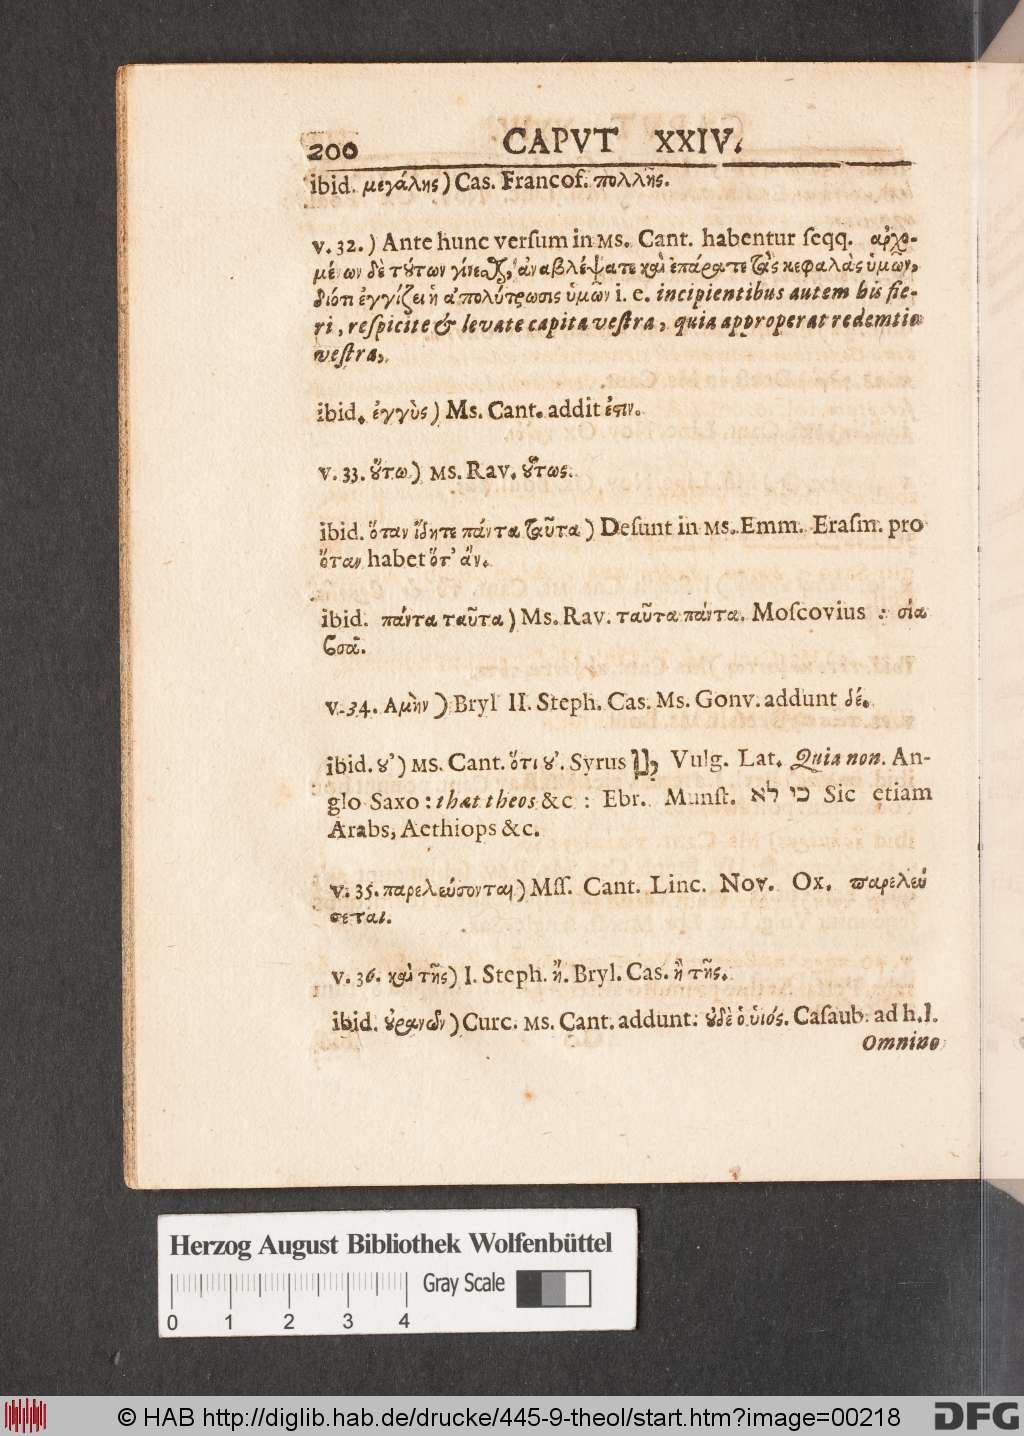 200 CAPVT XXIV.
ibid. μεγάλης) Cas. Francof. πολλῆς.
v. 32.) Ante hunc verſum in Ms. Cant. habentur ſeqq. αρχο-
μένων δὲ τȣ́των γίνεσθ, ἀναβλέψατε καὶ ἐπάρατε τὰς κεφαλὰς ὑμῶν,
διότι ἐγγίζει ἡ ἀπολύτρωσις ὑμῶν i. e. incipientibus autem his fie-
ri, reſpicite & levate capita veſtra, quia approperat redemtio
veſtra,
ibid. ἐγγὺς) Ms. Cant. addit ἐστιν.
v. 33. ȣ̔́τω) Ms. Rav. ȣ̔́τως.
ibid. ὅταν ἴδητε πάντα ταῦτα) Deſunt in Ms. Emm. Eraſm. pro
ὅταν habet ὅτ' ἄν.
ibid. πάντα ταῦτα) Ms. Rav. ταῦτα πάντα. Moſcovius : σία
v. 34. Αμὴν) Bryl II. Steph. Cas. Ms. Gonv. addunt δέ.
ibid. ȣ') Ms. Cant. ὅτι ȣ'. Syrus Vulg. Lat. Quia non. An-
glo Saxo: that theos &c : Ebr. Munſt. כי לא Sic etiam
Arabs, Aethiops &c.
v. 35. παρελεύσονται) Mſſ. Cant. Linc. Nov. Ox. παρελεύ
σεται.
v. 36. καὶ τῆς) I. Steph. ἤ. Bryl. Cas. ἢ τῆς.
ibid. ȣρανῶν) Curc. Ms. Cant. addunt: ȣδὲ ὁ ὑιός. Caſaub. ad h. l.
Omnino
Herzog August Bibliothek Wolfenbüttel
Gray Scale
0 1 2 3 4
© HAB http://diglib.hab.de/drucke/445-9-theol/start.htm?image=00218
DFG